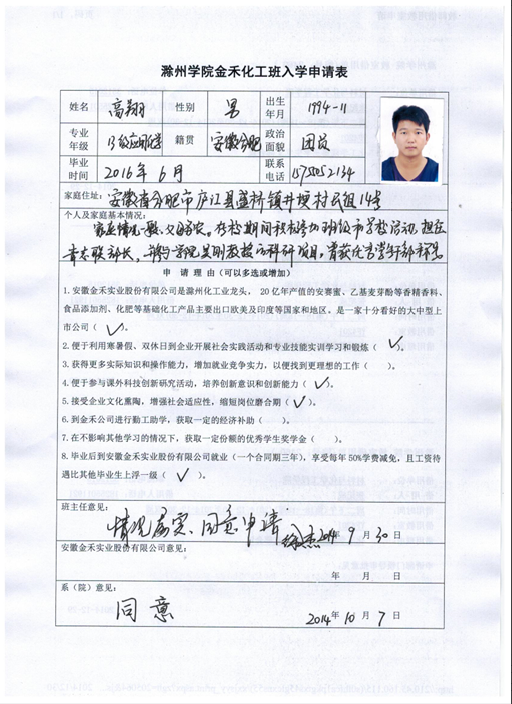 滁州学院金禾化工班入学申请表
姓名 高翔 性别 男 出生年月 1994-11
专业年级 13级应用化学 籍贯 安徽合肥 政治面貌 团员
毕业时间 2016年6月 联系电话
家庭住址：安徽省合肥市庐江县盛桥镇
个人及家庭基本情况：
家庭情况一般，父母务农。在校期间积极参加班级和学校活动，担任
部长，并参与学院吴刚教授的科研项目，曾获优秀学生干部称号
申 请 理 由（可以多选或增加）
1.安徽金禾实业股份有限公司是滁州化工业龙头，20亿年产值的安赛蜜、乙基麦芽酚等香精香料、
食品添加剂、化肥等基础化工产品主要出口欧美及印度等国家和地区。是一家十分看好的大中型上
市公司（ ✓ ）。
2.便于利用寒暑假、双休日到企业开展社会实践活动和专业技能实训学习和锻炼（ ✓ ）。
3.获得更多实际知识和操作能力，增加就业竞争实力，以便找到更理想的工作（ ）。
4.便于参与课外科技创新研究活动，培养创新意识和创新能力（ ✓ ）。
5.接受企业文化熏陶，增强社会适应性，缩短岗位磨合期（ ✓ ）。
6.到金禾公司进行勤工助学，获取一定的经济补助（ ）。
7.在不影响其他学习的情况下，获取一定份额的优秀学生奖学金（ ）。
8.毕业后到安徽金禾实业股份有限公司就业（一个合同期三年），享受每年50%学费减免，且工资待
遇比其他毕业生上浮一级（ ✓ ）。
班主任意见：
情况属实、同意申请
2014年9月30日
安徽金禾实业股份有限公司意见：
年 月 日
系（院）意见：
同意
2014年10月7日